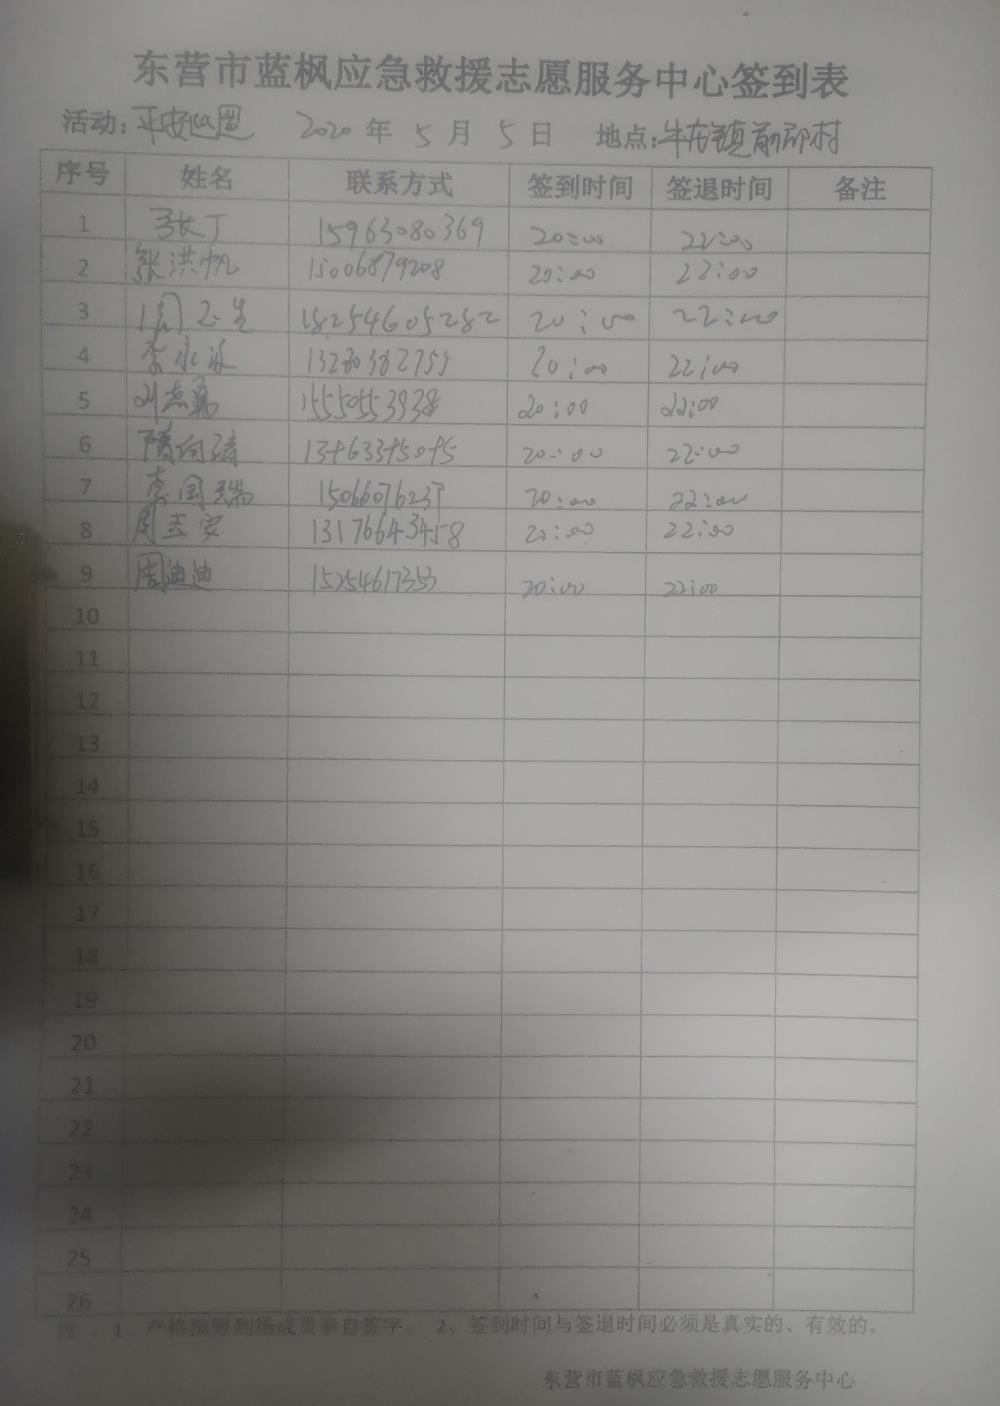 东营市蓝枫应急救援志愿服务中心签到表
活动：平安巡逻 2020年5月5日 地点：牛庄镇前邵村
序号 姓名 联系方式 签到时间 签退时间 备注
1 张丁 15963080369 20:00 22:00
2 张洪帆 15006879208 20:00 22:00
3 周玉生 18254605282 20:00 22:00
4 李永 20:00 22:00
5 刘志勇 15550553938 20:00 22:00
6 隋向涛 20:00 22:00
7 李国瑞 20:00 22:00
8 周 13176643458 20:00 22:00
9 周迪迪 15254617353 20:00 22:00
10
11
12
13
14
15
16
17
18
19
20
21
22
23
24
25
26
注：1、严格按照到场成员亲自签字。 2、签到时间与签退时间必须是真实的、有效的。
东营市蓝枫应急救援志愿服务中心